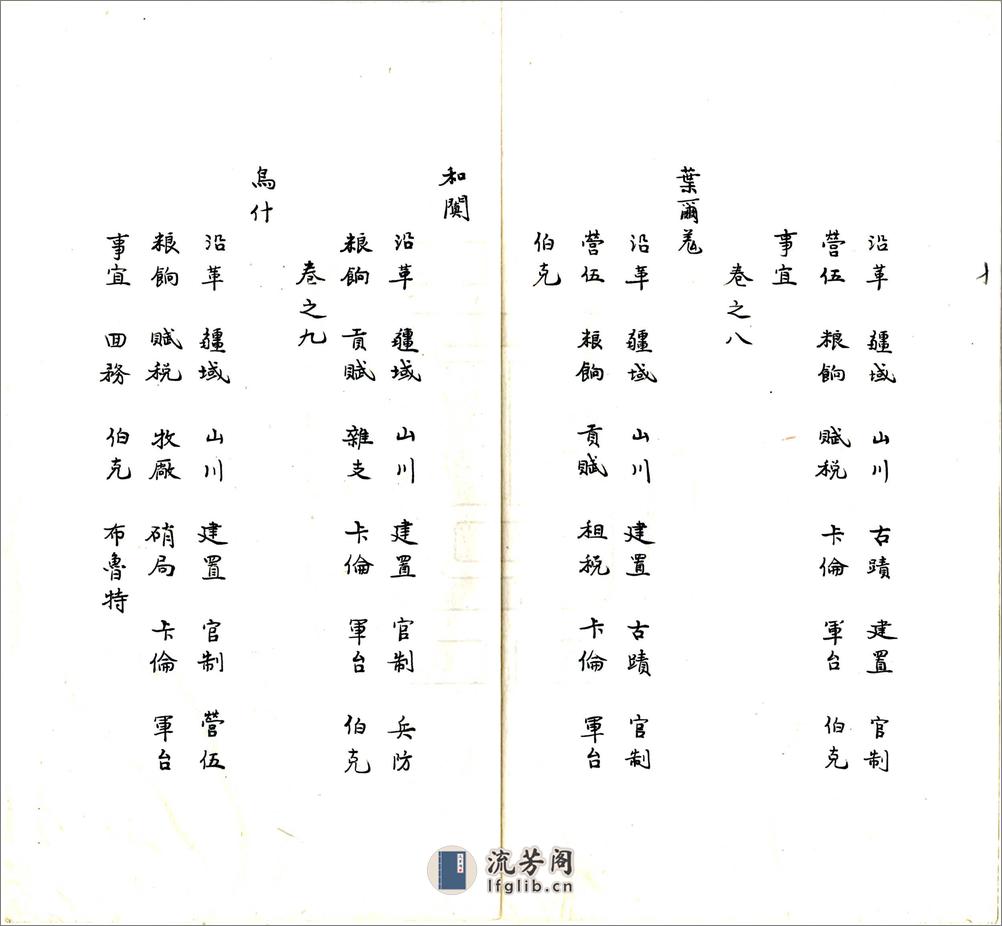 沿革 疆域 山川 古蹟 建置 官制
營伍 粮餉 賦税 卡倫 軍台 伯克
事宜
卷之八
葉爾羗
沿革 疆域 山川 建置 古蹟 官制
營伍 粮餉 貢賦 租税 卡倫 軍台
伯克
和闐
沿革 疆域 山川 建置 官制 兵防
粮餉 貢賦 雜支 卡倫 軍台 伯克
卷之九
烏什
沿革 疆域 山川 建置 官制 營伍
粮餉 賦税 牧廠 硝局 卡倫 軍台
事宜 回務 伯克 布魯特
流芳阁
lfglib.cn